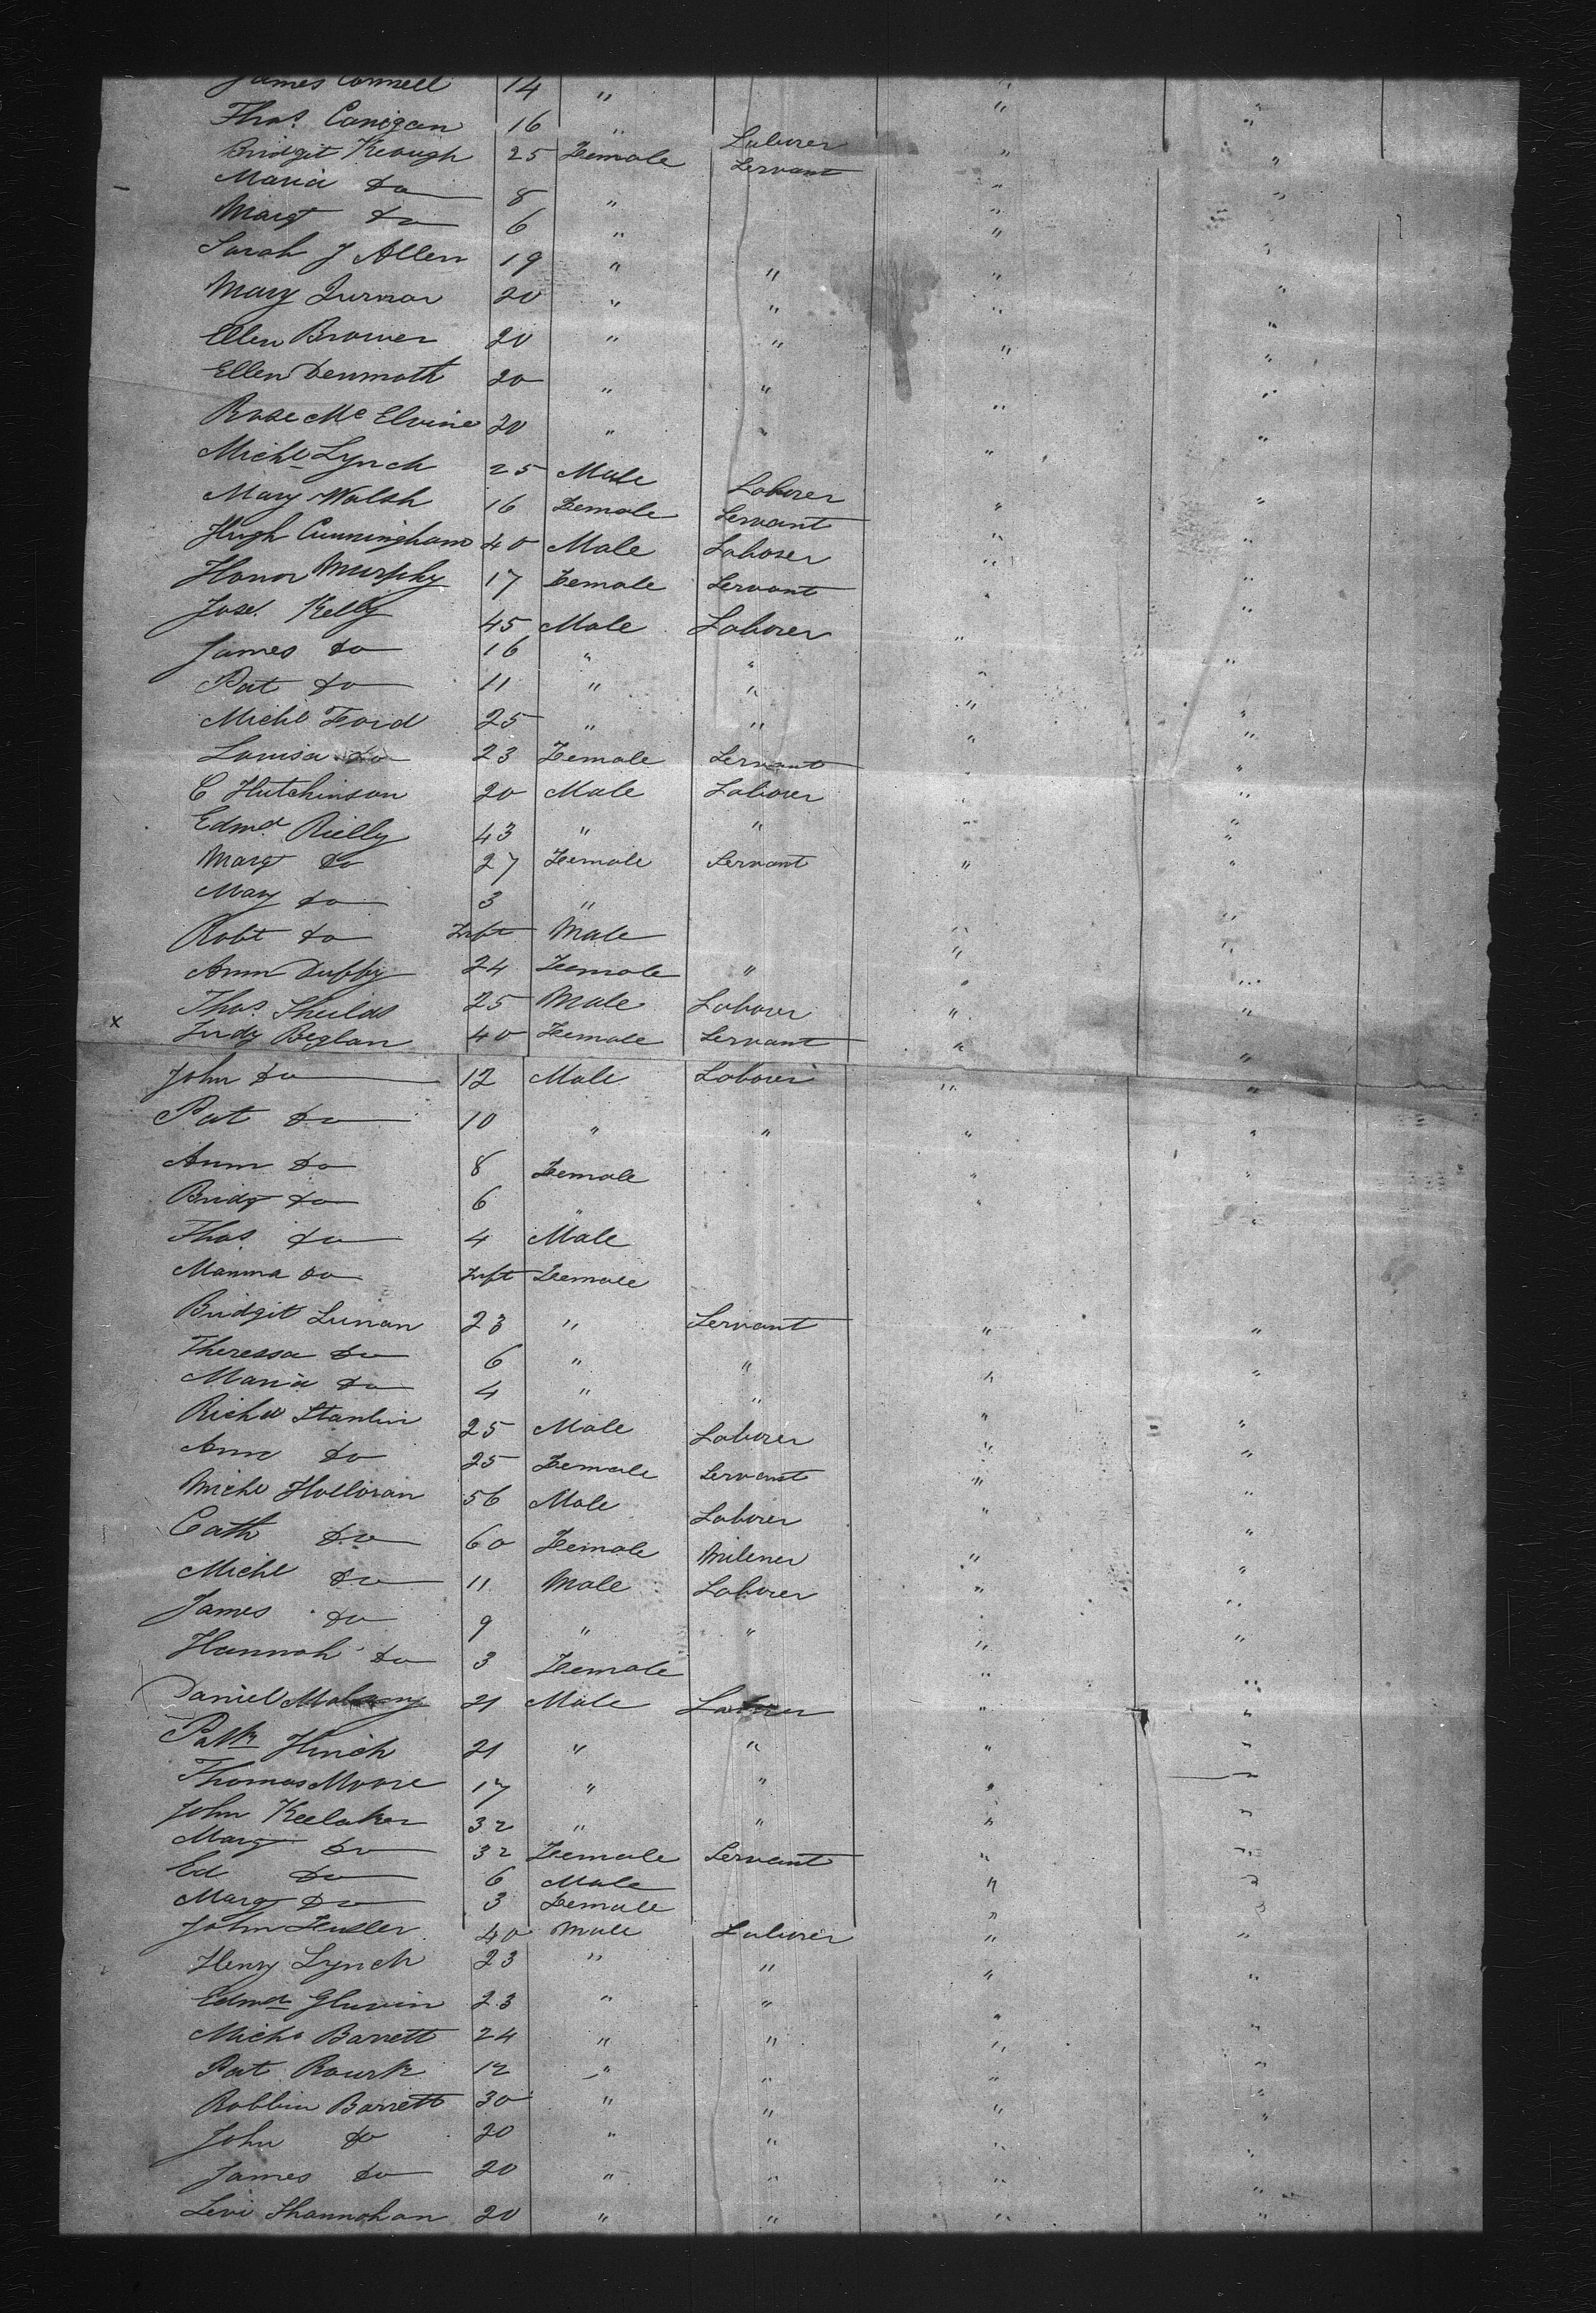 James Connell 14 "  " "
Thos. Canigan 16 " Laborer " "
Bridgit Keough 25 Female Servant " "
Maria do 8 " " "
Margt do 6 " "
Sarah J Allen 19 " " " "
Mary 20 " " " "
Ellen Brower 20 " " " "
Ellen Denmoth 20 " " " "
Rose McElvine 20 " " " "
Michl Lynch 25 Male Laborer
Mary Walsh 16 Female Servant " "
Hugh Cunningham 40 Male Laborer " "
Honor Murphy 17 Female Servant " "
Jos. Kelly 45 Male Laborer " "
James do 16 " " "
Pat do 11 " " " "
Michl Ford 25 " " " "
Louisa do 23 Female Servant " "
C Hutchinson 20 Male Laborer " "
Edmd Rielly 43 " " " "
Margt do 27 Female Servant " "
Mary do 3 "
Robt do Inft Male " "
Ann Duffy 24 Female " " "
Thos. Sheilds 25 Male Laborer " "
x Judy Beglan 40 Female Servant " "
John do 12 Male Laborer " "
Pat do 10 " " " "
Ann do 8 Female " "
Bridgt do 6 " " "
Thos. do 4 Male
do Inft Female
Bridgit Lunan 23 " Servant " "
Theressa do 6 " " " "
Maria do 4 " "
Richd Stanlin 25 Male Laborer " "
Ann do 25 Female Servant " "
Michl Holloran 56 Male Laborer " "
Cath do 60 Female Milener " "
Michl do 11 Male Laborer " "
James do 9 " " " "
Hannah do 3 Female " "
Daniel 21 Male Laborer " "
Patk Hinch 21 " " " "
Thomas Moore 17 " " " "
John Keelaher 32 " " " "
Margt do 32 Female Servant " "
Ed do 6 Male " "
Margt do 3 Female "
John Fuller 40 Male Laborer " "
Henry Lynch 23 " " " "
Edmd Glavin 23 " " "
Michl Barrett 24 " " " "
Pat Rourk 12 " " " "
Robbin Barrett 30 " " " "
John do 20 " " " "
James do 20 " " " "
Levi Shannohan 20 " " " "